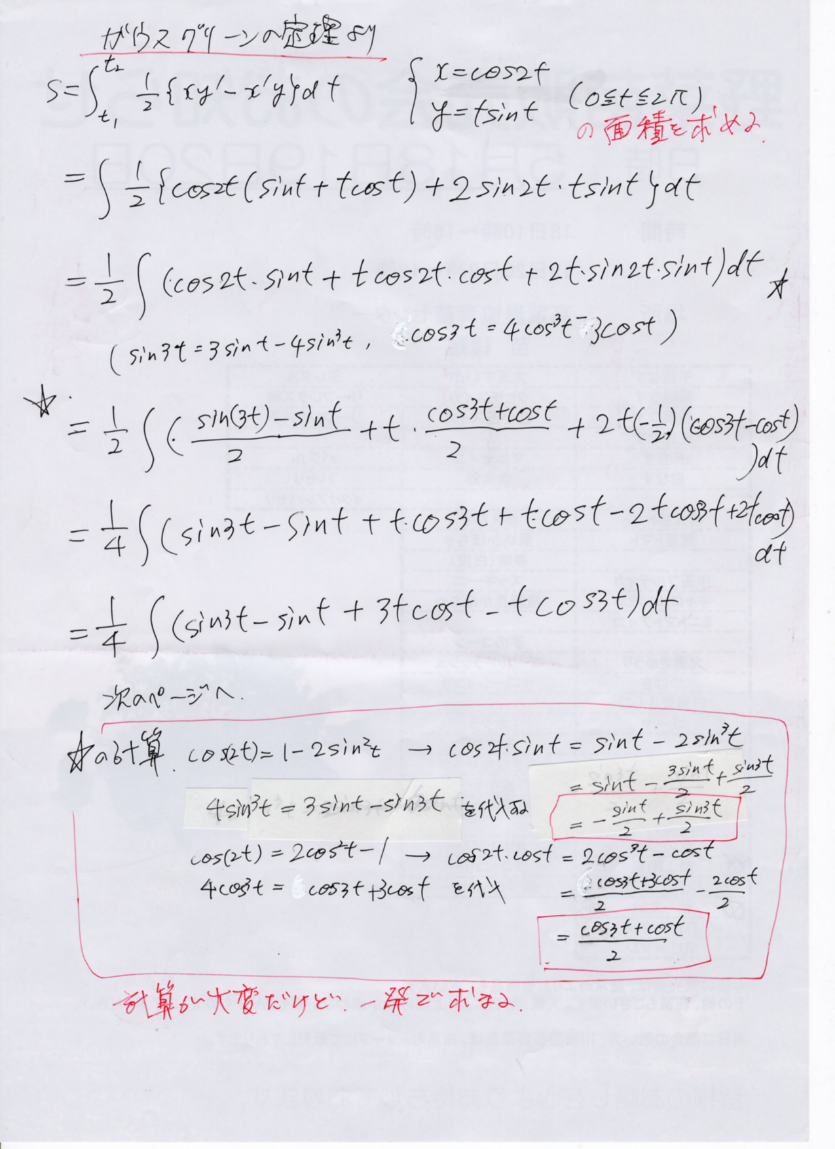 ガウスグリーンの定理より
S=∫_{t₁}^{t₂} 1/2 {xy′-x′y}dt { x=cos2t y=tsint (0≦t≦2π)
の面積を求める.
=∫ 1/2 {cos2t(sint+tcost)+2sin2t·tsint}dt
=1/2 ∫(cos2t·sint+tcos2t·cost+2t·sin2t·sint)dt ☆
(sin3t=3sint-4sin³t, cos3t=4cos³t-3cost)
☆
=1/2 ∫((sin(3t)-sint)/2+t·(cos3t+cost)/2+2t(-1/2)(cos3t-cost))dt
=1/4 ∫(sin3t-sint+t·cos3t+t·cost-2tcos3t+2tcost)dt
=1/4 ∫(sin3t-sint+3tcost-tcos3t)dt
次のページへ.
☆の計算. cos(2t)=1-2sin²t → cos2t·sint=sint-2sin³t
=sint-3sint/2+sin3t/2
4sin³t=3sint-sin3t を代入する =-sint/2+sin3t/2
cos(2t)=2cos²t-1 → cos2t·cost=2cos³t-cost
4cos³t=cos3t+3cost を代入 =(cos3t+3cost)/2-2cost/2
=(cos3t+cost)/2
計算が大変だけど、一発で求まる.